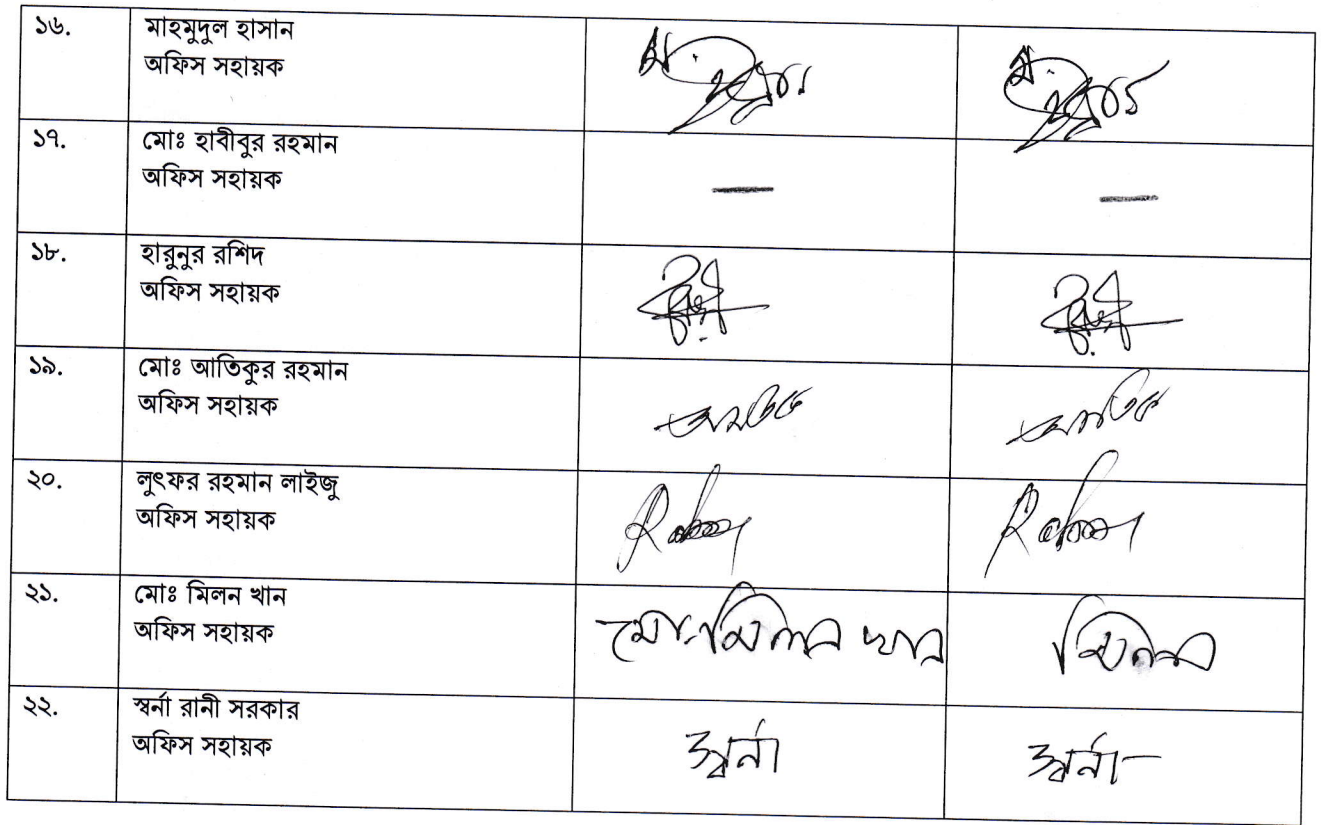 ১৬. মাহমুদুল হাসান
অফিস সহায়ক
১৭. মোঃ হাবীবুর রহমান
অফিস সহায়ক
— —
১৮. হারুনুর রশিদ
অফিস সহায়ক
১৯. মোঃ আতিকুর রহমান
অফিস সহায়ক
আতিক
২০. লুৎফর রহমান লাইজু
অফিস সহায়ক
২১. মোঃ মিলন খান
অফিস সহায়ক
মোঃ মিলন খান মিলন
২২. স্বর্না রানী সরকার
অফিস সহায়ক
স্বর্না স্বর্না